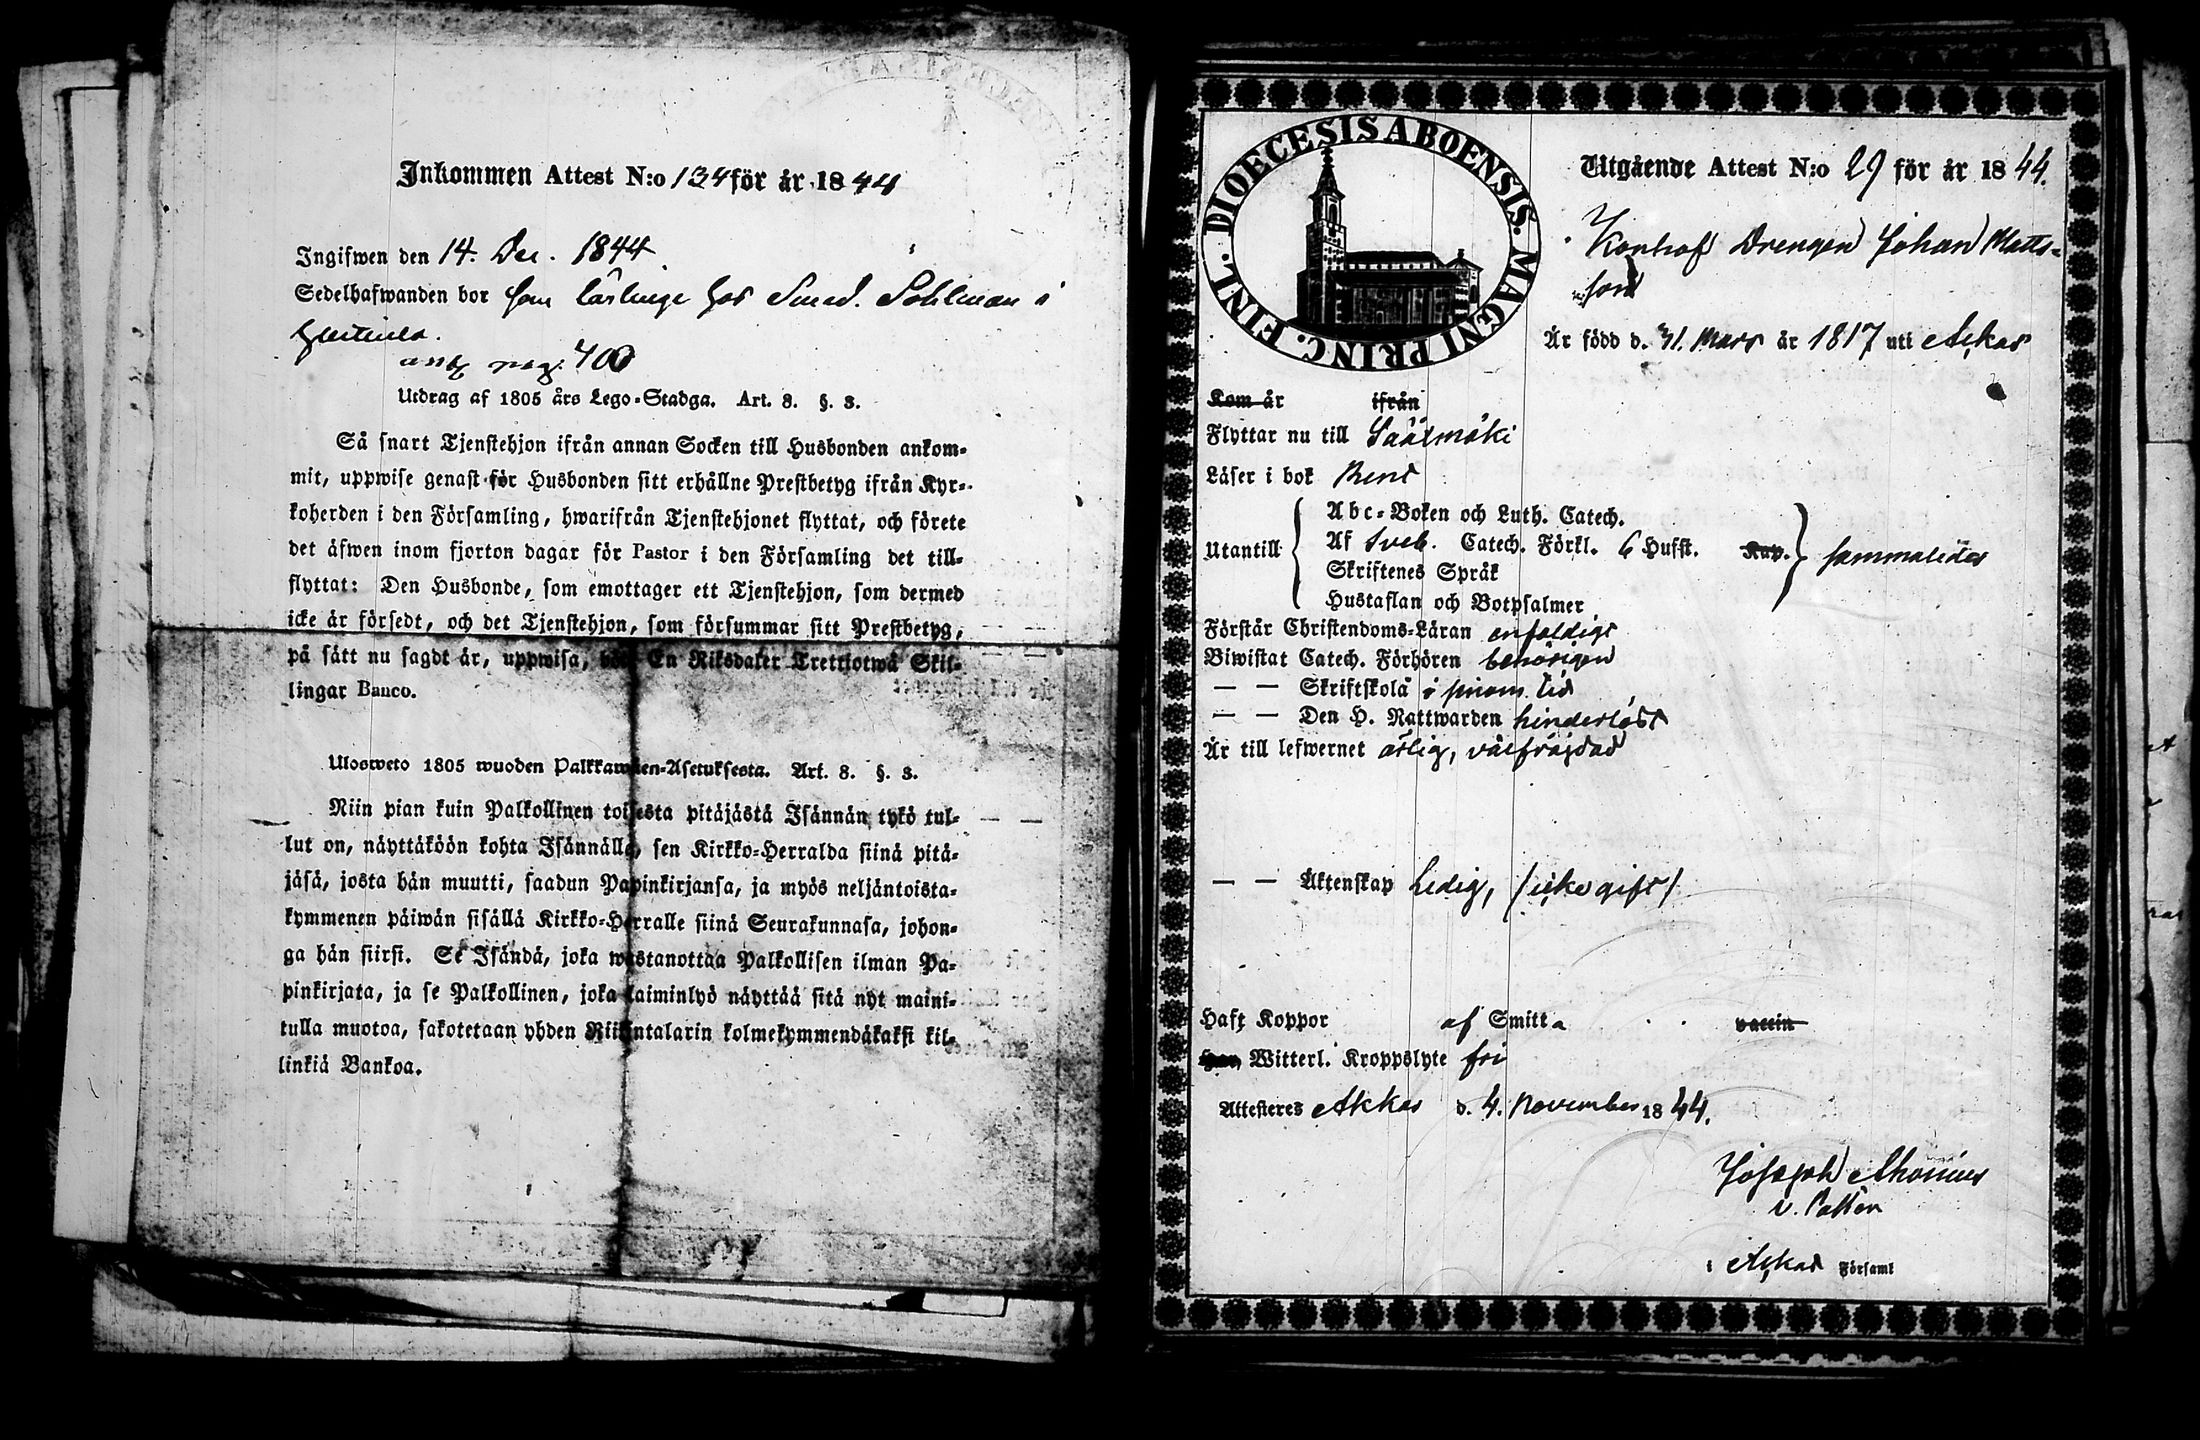 Inkommen Attest N:o 134 för år 1844
Ingifwen den 14. Dec. 1844
Sedelhafwanden bor som lärlinge hos Smed. Sohlman i
ant. pag. 400
Utdrag af 1805 års Lego-Stadga. Art. 8. §. 3.
Så snart Tjenstehjon ifrån annan Socken till Husbonden ankom-
mit, uppwise genast för Husbonden sitt erhållne Prestbetyg ifrån Kyr-
koherden i den Församling, hwarifrån Tjenstehjonet flyttat, och förete
det äfwen inom fjorton dagar för Pastor i den Församling det till-
flyttat: Den Husbonde, som emottager ett Tjenstehjon, som dermed
icke är försedt, och det Tjenstehjon, som försummar sitt Prestbetyg,
på sätt nu sagdt är, uppwisa, En Riksdaler Trettiotwå Skil-
lingar Banco.
Ulosweto 1805 wuoden Palkkawäen-Asetuksesta. Art. 8. §. 3.
Niin pian kuin Palkollinen toisesta pitäjästä Isännän tykö tul-
lut on, näyttäköön kohta Isännällä, sen Kirkko-Herralda siinä pitä-
jäsä, josta hän muutti, saadun Papinkirjansa, ja myös neljäntoista-
kymmenen päiwän sisällä Kirkko-Herralle siinä Seurakunnasa, johon-
ga hän siirsi. Se Isändä, joka wastanottaa Palkollisen ilman Pa-
pinkirjata, ja se Palkollinen, joka laiminlyö näyttää sitä nyt maini-
tulla muotoa, sakotetaan yhden Riikintalarin kolmekymmendäkaksi kil-
linkiä Bankoa.
DIOECESIS ABOENSIS. MAGNI PRINC. FINL.
Utgående Attest N:o 29 för år 1844.
Drengen Johan Matts-
son
Är född d. 31. Mars år 1817 uti Ackas
Kom år ifrån
Flyttar nu till Sääxmäki
Läser i bok Rent
Abc-Boken och Luth. Catech.
Utantill Af Sveb. Catech. Förkl. 6 Hufst. Kap. sammaledes
Skriftenes Språk
Hustaflan och Botpsalmer
Förstår Christendoms-Läran enfaldigt
Biwistat Catech. Förhören behörigen
— — Skriftskola i sinom tid
— — Den H. Nattwarden hinderlöst
Är till lefwernet ärlig, välfrägdad
— — Äktenskap Ledig, /icke gift/
Haft Koppor af Smitta vaccin
Har Witterl. Kroppslyte fri
Attesteres Akkas d. 4. November 1844.
Joseph
v. Pastor
i Ackas Församl